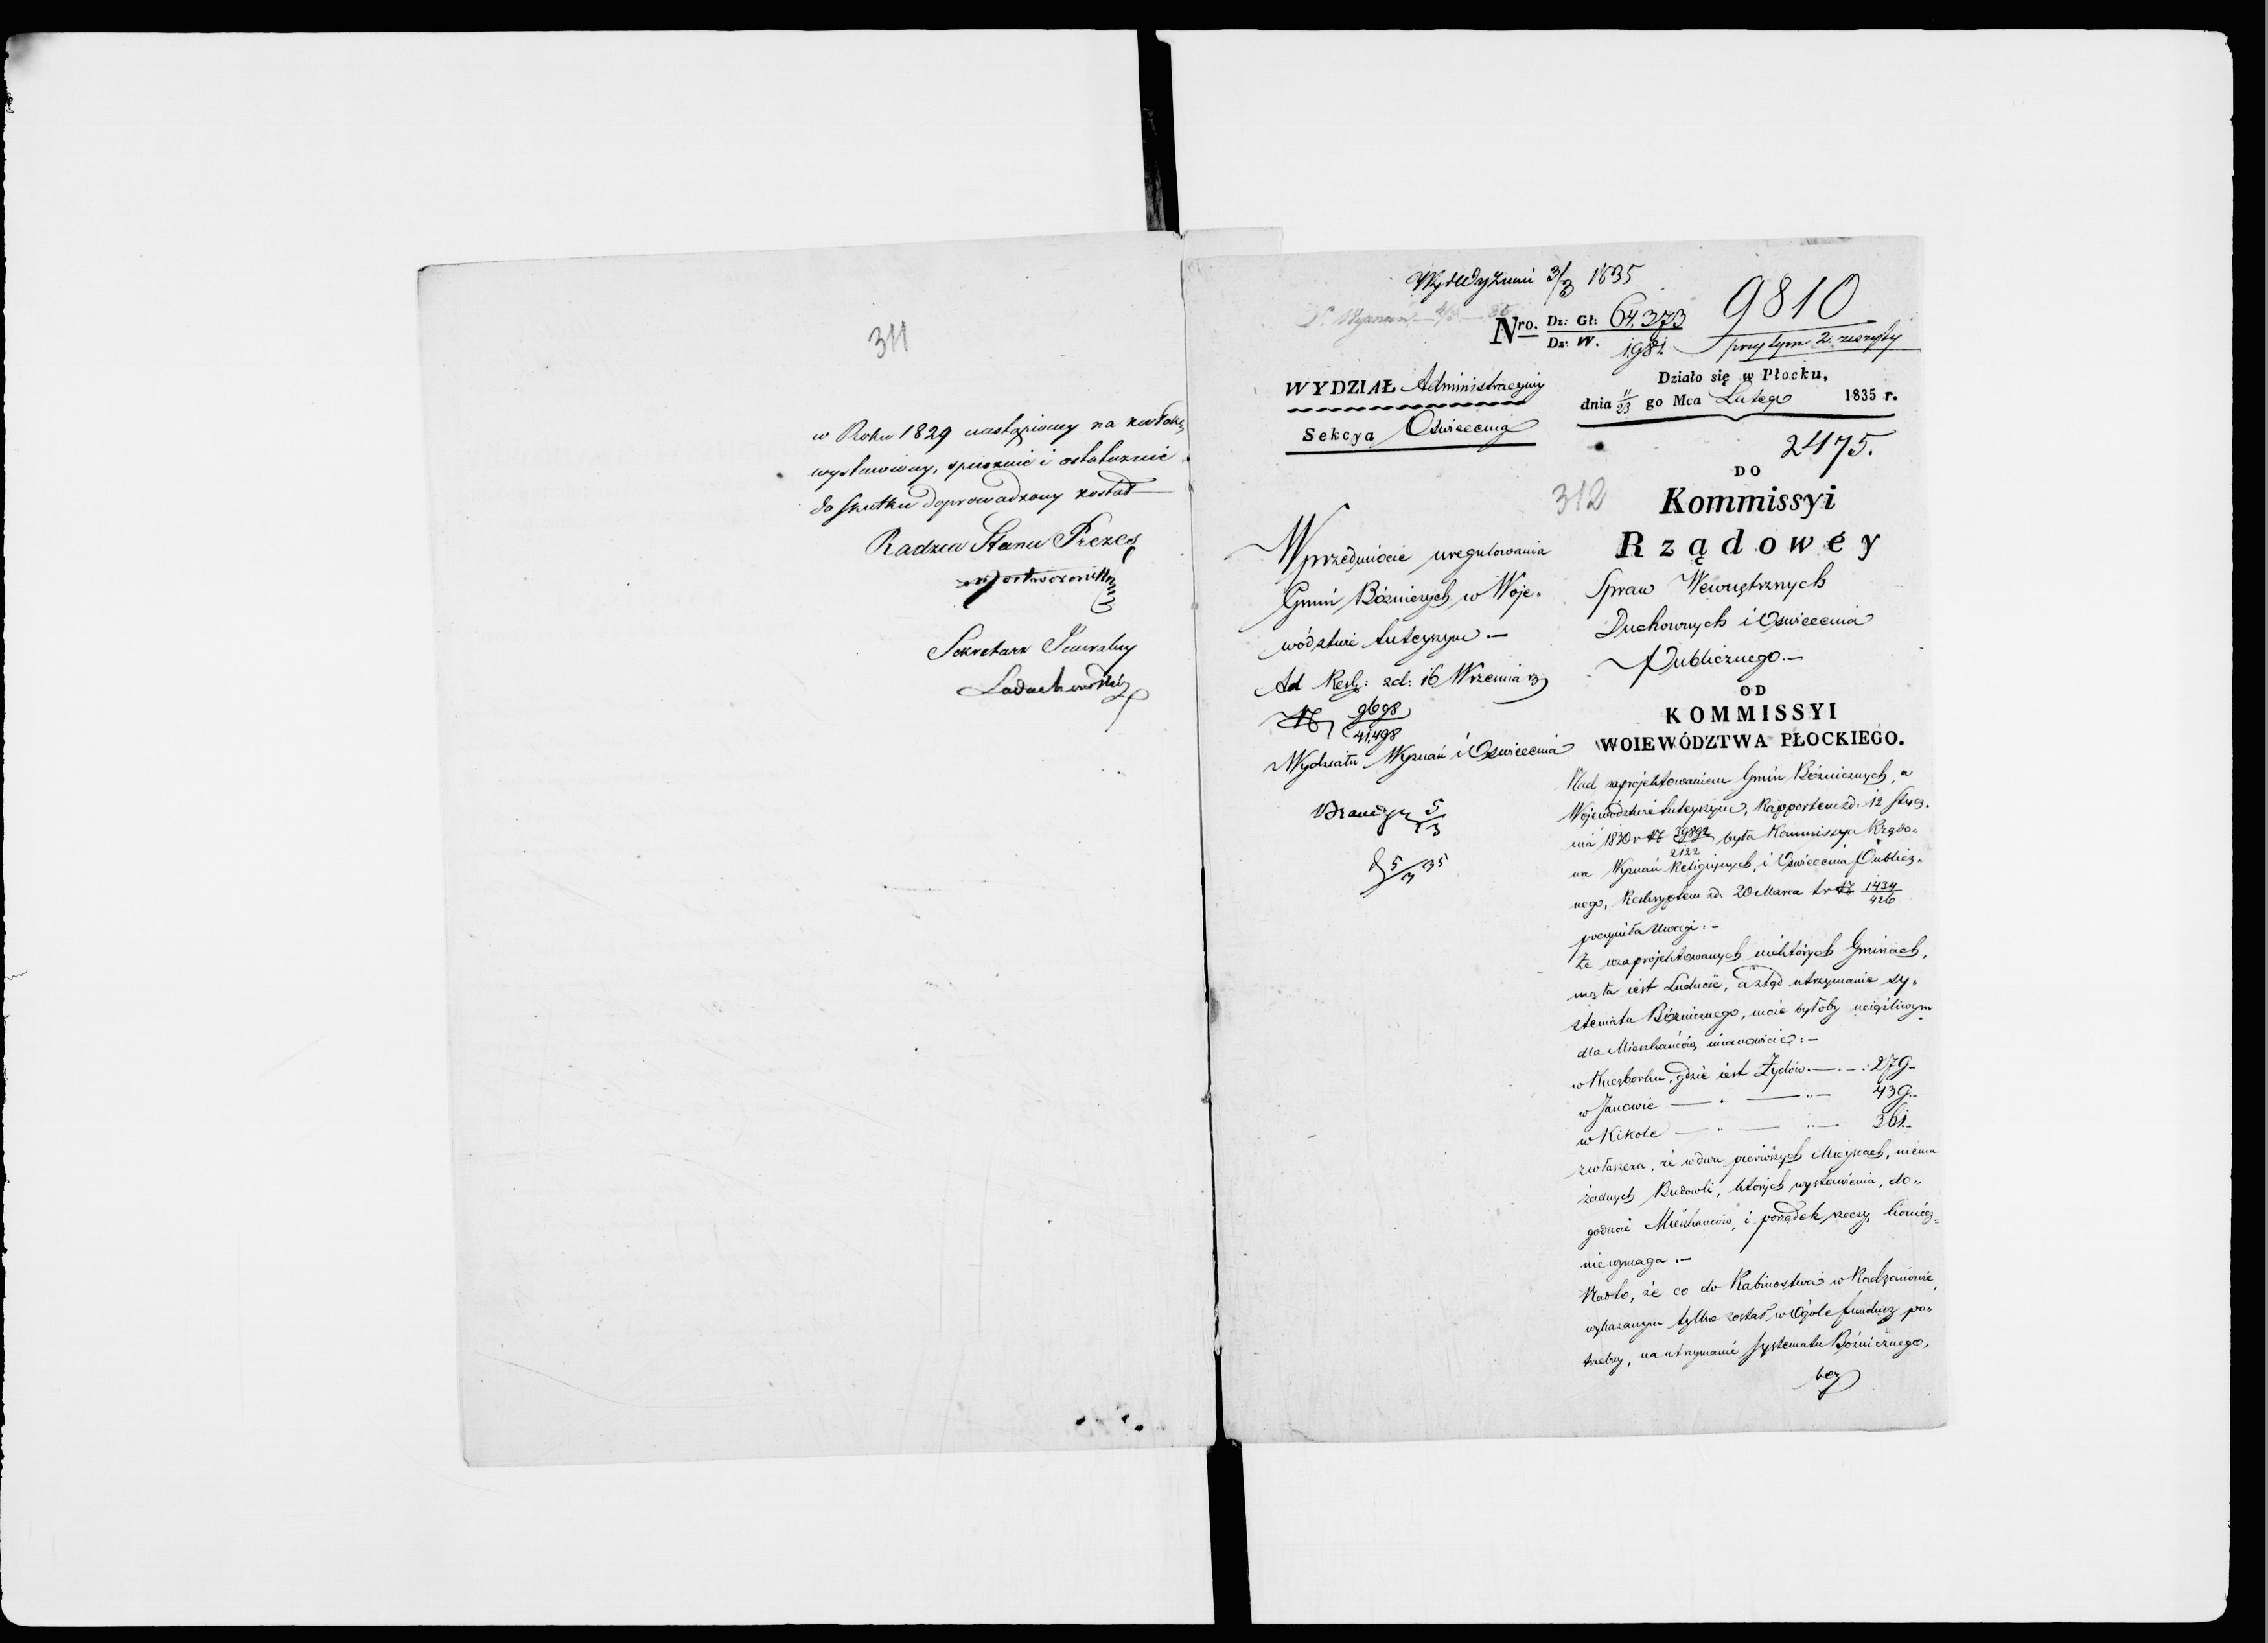 311
w Roku 1829 nastąpiony na zwłokę
wystawiony, spiesznie i ostatecznie
do skutku doprowadzony został
Radzca Stanu Prezes
Sekretarz Jeneralny
Wydz Wyznań 3/3 1835
9810
Nro. Dz: Gł: 64,373
Dz: W. 1981.
przytym 2. zeszyty
WYDZIAŁ Administracyiny
Sekcya Oświecenia
Działo się w Płocku,
dnia 11/23 go Mca Lutego 1835 r.
2475.
312
W przedmiocie uregulowania
Gmin Bóźniczych w Woje-
wództwie tuteyszym.—
Ad Resk: zd: 16 Września
N 9698
41,498
Wydziału Wyznań i Oświecenia
5/3
5/3 35
DO
Kommissyi
Rządowéy
Spraw Wewnętrznych
Duchownych i Oświecenia
Publicznego.—
OD
KOMMISSYI
WOIEWÓDZTWA PŁOCKIEGO.
Nad zaprojektowaniem Gmin Bóźnicznych, w
Województwie tuteyszym, Rapportem zd. 12 Stycz.
nia 1830 r N 39892/2122 była Kommissya Rządo-
wa Wyznań Religijnych, i Oświecenia Publicz-
nego, Reskryptem zd. 20 Marca t r N 1434/426
poczyniła Uwagi:—
Że w zaprojektowanych niektórych Gminach,
mała iest Ludność, a ztąd utrzymanie sy-
stematu Bóżnicznego, może byłoby uciążliwym
dla Mieszkańców, mianowicie:—
w Kuczborku, gdzie iest Żydów — . — : 279—
w Janowie — " — " — 439—
w Kikole — " — " — 361.—
zwłaszcza, że w dwu pierwszych Miejscach, niema
żadnych Budowli, których wystawienia, do-
godność Mieszkańców, i porządek rzeczy, koniecz-
nie wymaga.—
Nadto, że co do Rabinostwa w Radzanowie,
wykazanym tylko został w Ogóle fundusz po-
trzebny, na utrzymanie Systematu Bóżnicznego,
bez